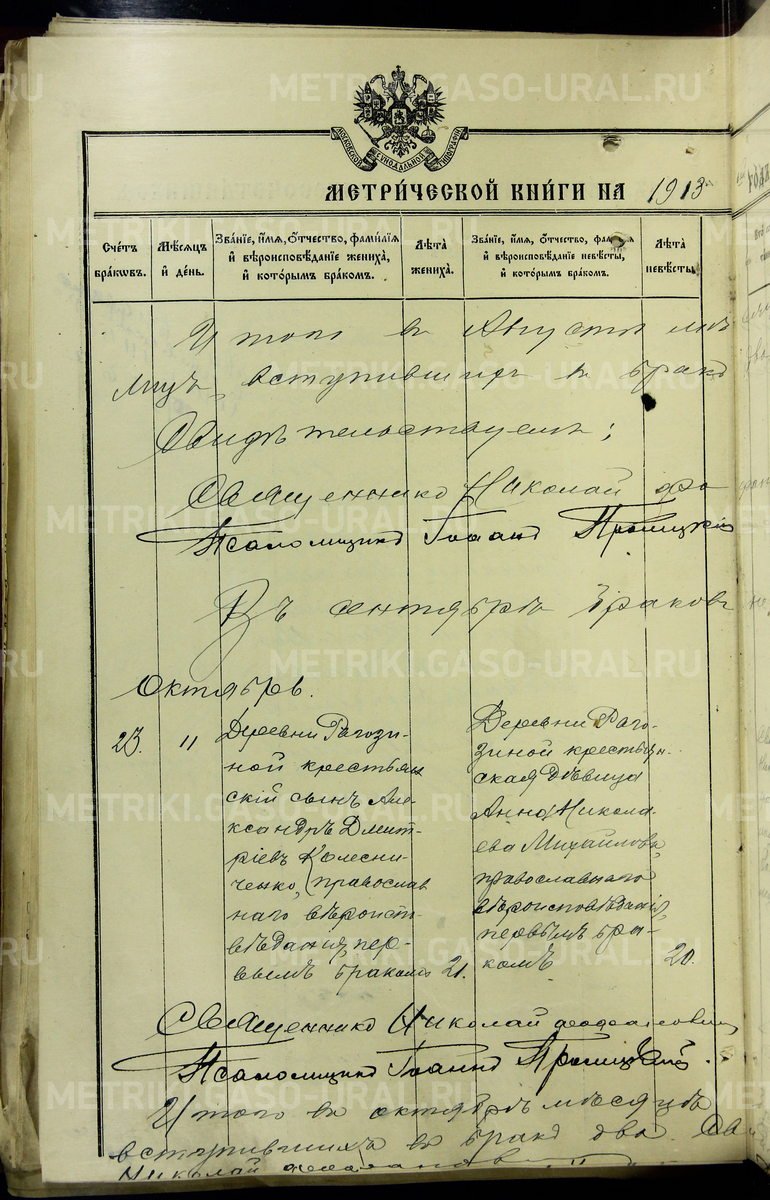 МОСКОВСКОЙ СѴНОДАЛЬНОЙ ТИПОГРАФІИ
МЕТРИ́ЧЕСКОЙ КНИ́ГИ НА 1913
Сче́тъ бра́кѡвъ.
Мѣ́сѧцъ и҆ де́нь.
Зва́нїе, и҆́мѧ, ѻ҆́тчество, фами́лїѧ и҆ вѣроисповѣ́данїе жениха̀, и҆ кото́рымъ бра́комъ.
Лѣ́та жениха̀.
Зва́нїе, и҆́мѧ, ѻ҆́тчество, фами́лїѧ и҆ вѣроисповѣ́данїе невѣ́сты, и҆ кото́рымъ бра́комъ.
Лѣ́та невѣ́сты
Итого въ Августѣ мѣ
вступившихъ въ бракъ
Свидѣтельствуемъ:
Священникъ Николай
Псаломщикъ Іоаннъ Троицкій
Въ сентябрѣ браковъ
Октябрь.
23. 11
Деревни Рагози-
ной крестьян
скій сынъ Але
ксандръ Дмит-
ріевъ Колесни-
ченко, православ
наго вѣроисп-
вѣданія, пер-
вымъ бракомъ 21.
Деревни Раго-
зиной крестьян-
ская дѣвица
Анна Никола-
ева Михайлова,
православнаго
вѣроисповѣданія,
первымъ бра-
комъ 20.
Священникъ Николай
Псаломщикъ Іоаннъ Троицкій.
Итого въ октябрѣ мѣсяцѣ
вступившихъ въ бракъ два.
Николай
METRIKI.GASO-URAL.RU